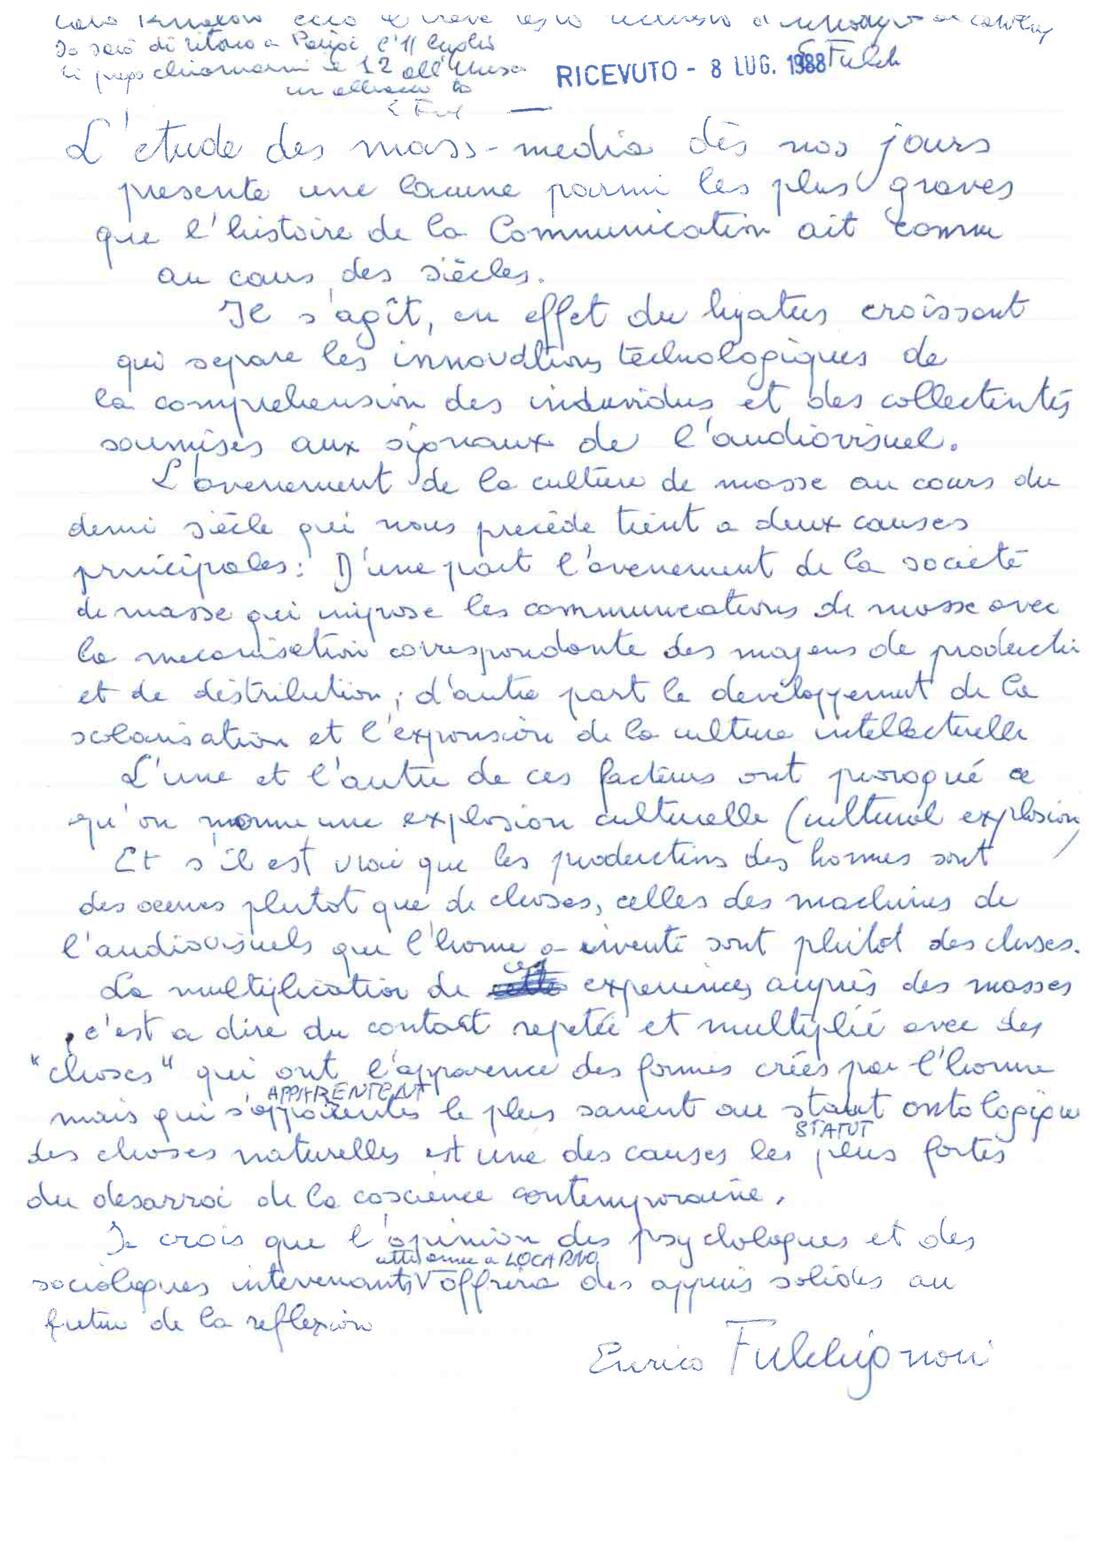 ecco il breve testo
Io sarò di ritorno a Parigi l'11 luglio
ti prego chiamarmi il 12 all'Unesco E Fulch
un abbraccio to
RICEVUTO - 8 LUG. 1988
E Ful
L'etude des mass-media dès nos jours
presente une lacune parmi les plus graves
que l'histoire de la Communication ait connu
au cours des siècles.
Il s'agît, en effet du hyatus croissant
qui separe les innovations technologiques de
la comprehension des individus et des collectivités
soumises aux signaux de l'audiovisuel.
L'avenement de la culture de masse au cours du
demi siècle qui nous precède tient a deux causes
principales: D'une part l'avenement de la societé
de masse qui impose les communications de masse avec
la mecanisation correspondante des moyens de productio
et de distribution; d'autre part le developpement de la
scolarisation et l'expansion de la culture intellectuelle
L'une et l'autre de ces facteurs ont provoqué ce
qu'on nomme une explosion culturelle (cultural explosion)
Et s'il est vrai que les productions des hommes sont
des oeuvres plutot que de choses, celles des machines de
l'audiovisuels que l'homme a inventé sont plutot des choses.
La multiplication de ces experiences auprès des masses
c'est a dire du contact repetée et multiplié avec des
"choses" qui ont l'apparence des formes créés par l'homme
APPARENTENT
mais qui s'apparentes le plus souvent au statut ontologique
STATUT
des choses naturelles est une des causes les plus fortes
du desarroi de la coscience contemporaine.
Je crois que l'opinion des psychologues et des
a LOCARNO
sociologues intervenants offrira des appuis solides au
futur de la reflexion
Enrico Fulchignoni